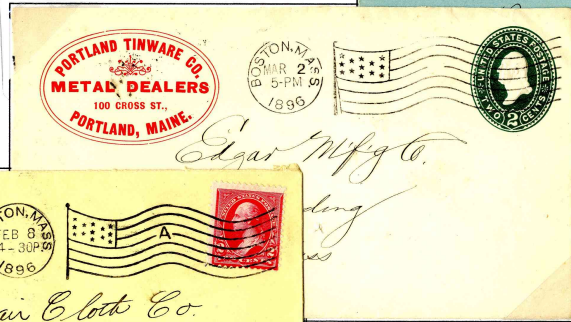 PORTLAND TINWARE CO.
METAL DEALERS
100 CROSS ST.,
PORTLAND, MAINE.
BOSTON, MASS
MAR 2
5-PM
1896
UNITED STATES POSTAGE
TWO 2 CENTS
Edgar M'f'g Co.
ding
ss
TON, MASS
FEB 8
4-30P
1896
A
air Cloth Co.